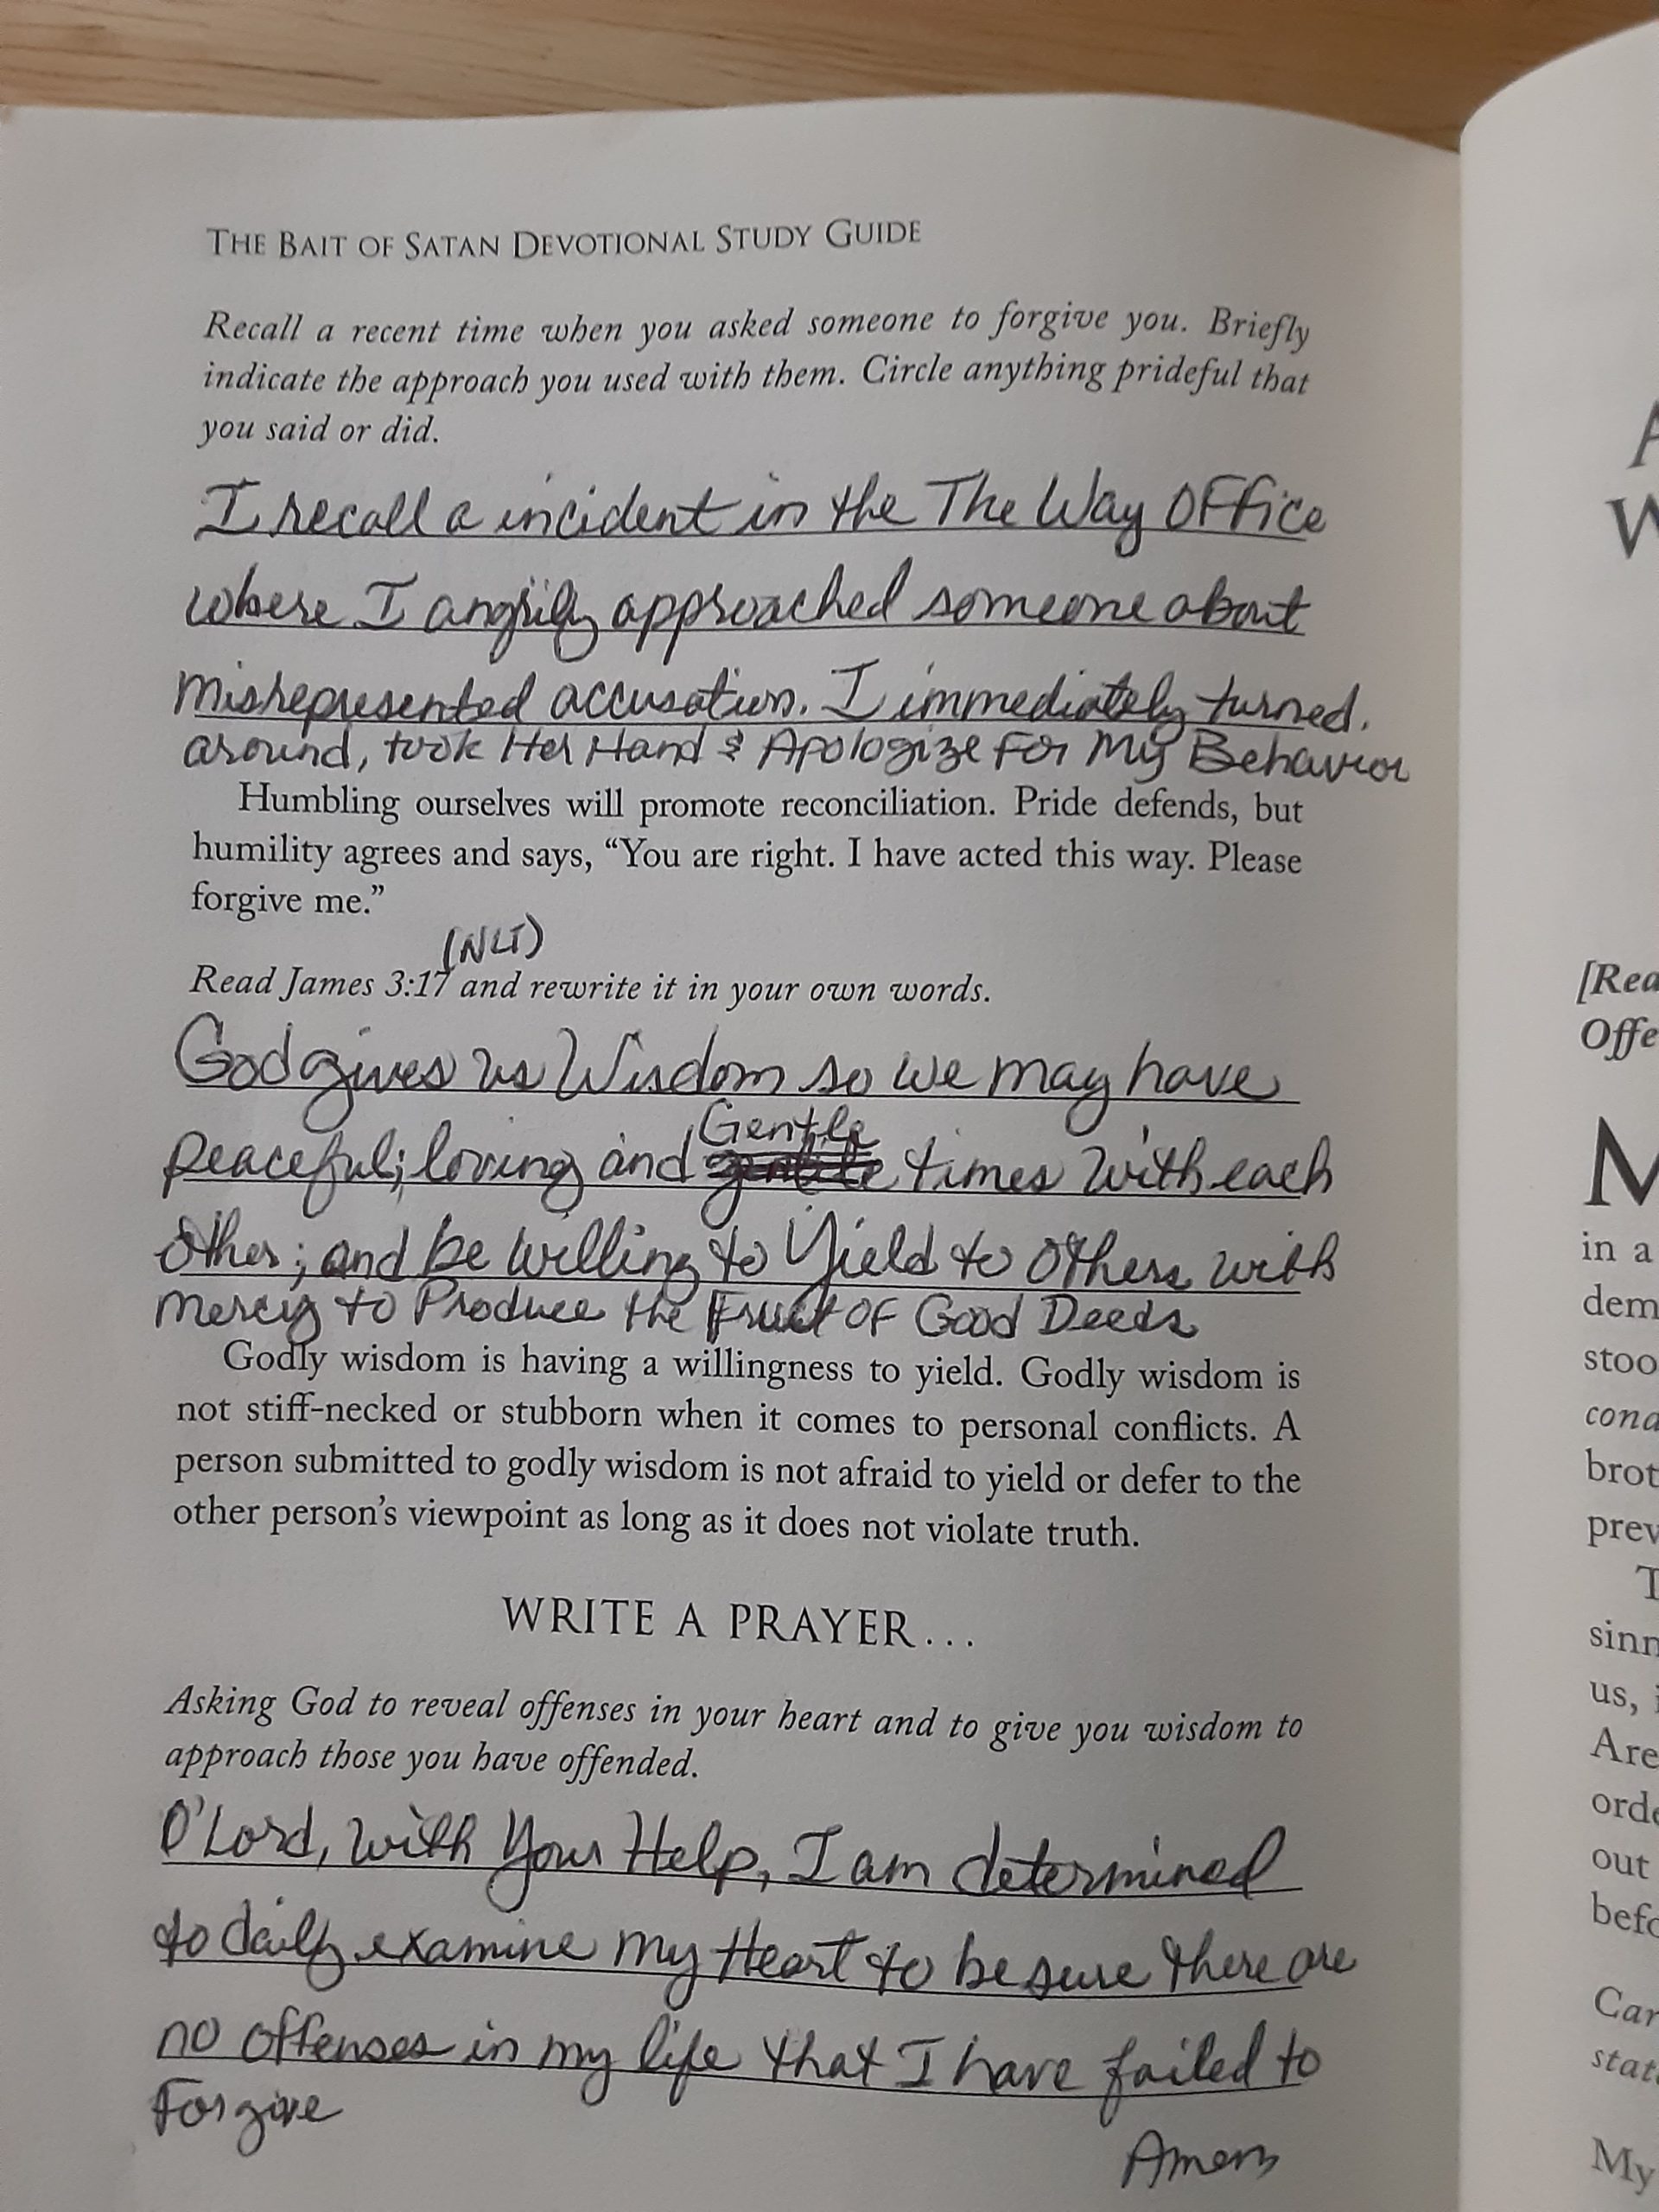 THE BAIT OF SATAN DEVOTIONAL STUDY GUIDE
Recall a recent time when you asked someone to forgive you. Briefly
indicate the approach you used with them. Circle anything prideful that
you said or did.
I recall a incident in the The Way Office
where I angrily approached someone about
misrepresented accusation. I immediately turned.
around, took Her Hand & Apologize For My Behavior
Humbling ourselves will promote reconciliation. Pride defends, but
humility agrees and says, “You are right. I have acted this way. Please
forgive me.”
(NLT)
Read James 3:17 and rewrite it in your own words.
God gives us Wisdom so we may have
Gentle
peaceful; loving and times with each
other; and be willing to Yield to Others with
Mercy to Produce the Fruit of Good Deeds
Godly wisdom is having a willingness to yield. Godly wisdom is
not stiff-necked or stubborn when it comes to personal conflicts. A
person submitted to godly wisdom is not afraid to yield or defer to the
other person’s viewpoint as long as it does not violate truth.
WRITE A PRAYER...
Asking God to reveal offenses in your heart and to give you wisdom to
approach those you have offended.
O'Lord, with Your Help, I am determined
to daily examine my Heart to be sure there are
no offenses in my life that I have failed to
Forgive
Amen
[Rea
Offe
M
in a
dem
stoo
cond
brot
prev
T
sinn
us, i
Are
orde
out
befo
Car
stat
My